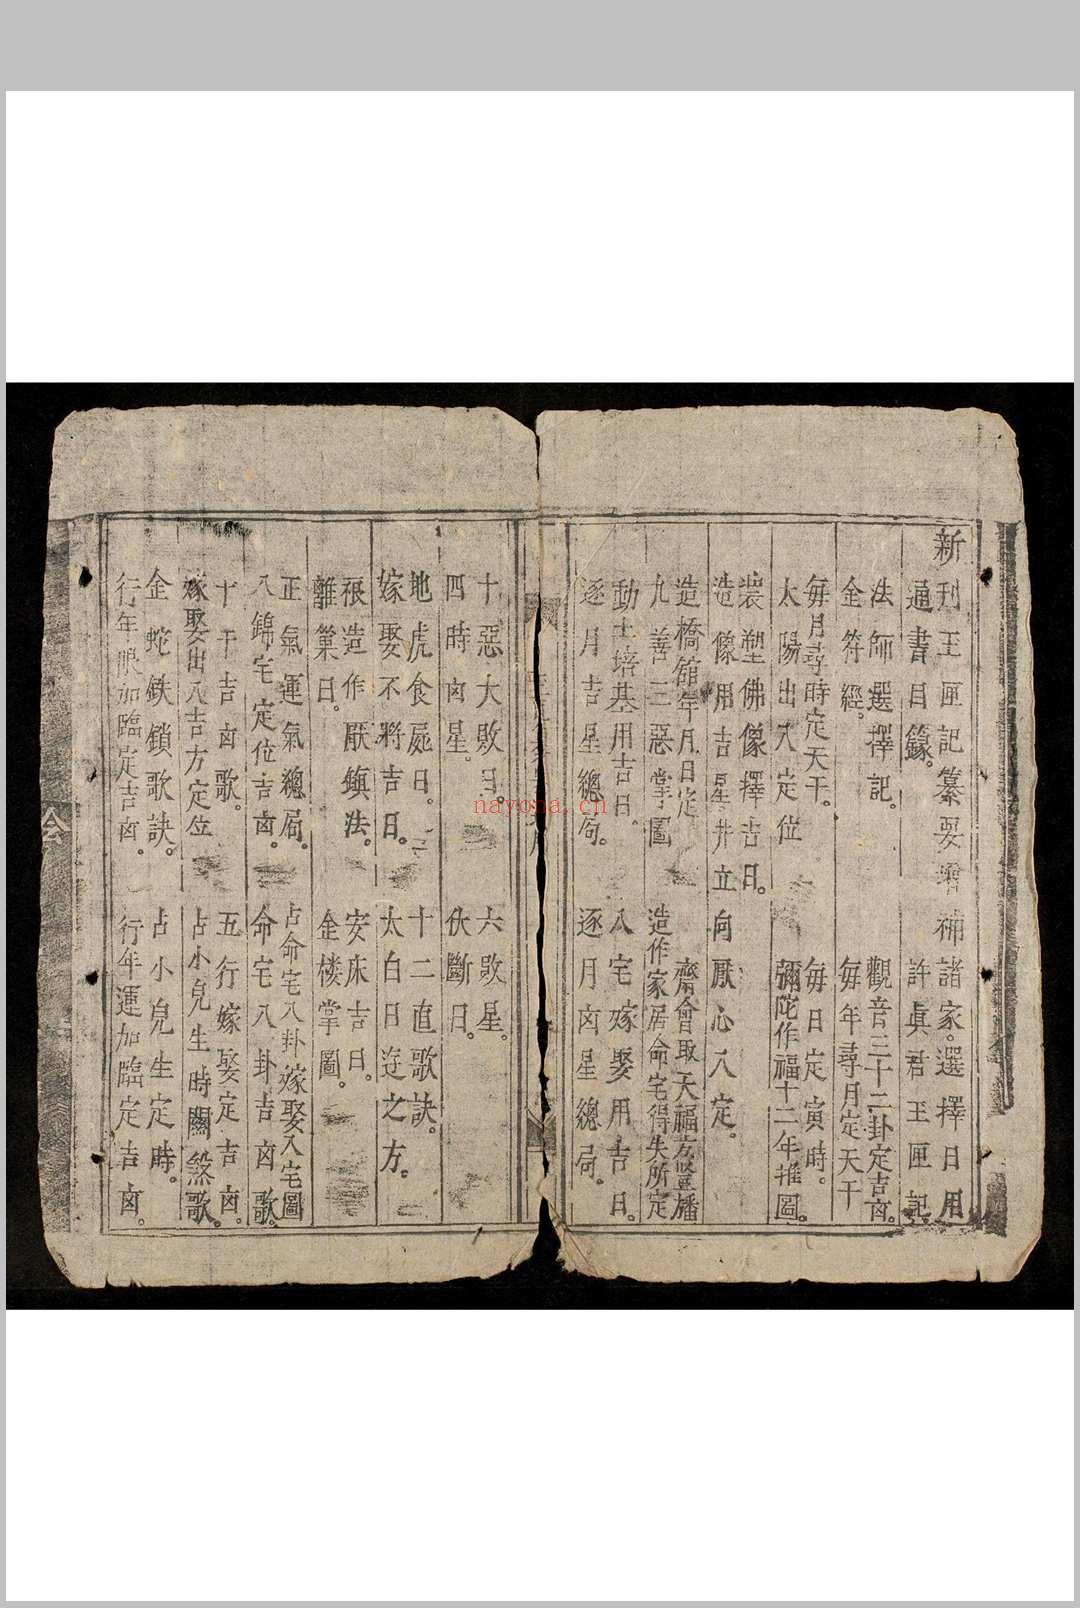 新刊玉匣記纂要增補諸家選擇日用
通書目錄 許真君玉匣記
法師選擇記 觀音三十二卦定吉㐫
金符經 每年尋月定天干
每月尋時定天干 每日定寅時
太陽出入定位 彌陀作福十二年推圖
裝塑佛像擇吉日
造像用吉星并立向厭心入定
造橋舘年月日定 齋會取天福方豎旛
九善三惡掌圖 造作家居命宅得失所定
動土培基用吉日 八宅嫁娶用吉日
逐月吉星總局 逐月㐫星總局
十惡大敗日 六敗星
四時㐫星 伏斷日
地虎食屍日 十二直歌訣
嫁娶不將吉日 太白日遊之方
造作厭鎮法 安床吉日
離巢日 金樓掌圖
正氣運氣總局 占命宅八卦嫁娶入宅圖
八錦宅定位吉㐫 命宅八卦吉㐫歌
十干吉㐫歌 五行嫁娶定吉㐫
嫁娶出入吉方定位 占小兒生時關煞歌
金蛇鉄鎖歌訣 占小兒生定時
行年加臨定吉㐫 行年運加臨定吉㐫
nayona.cn